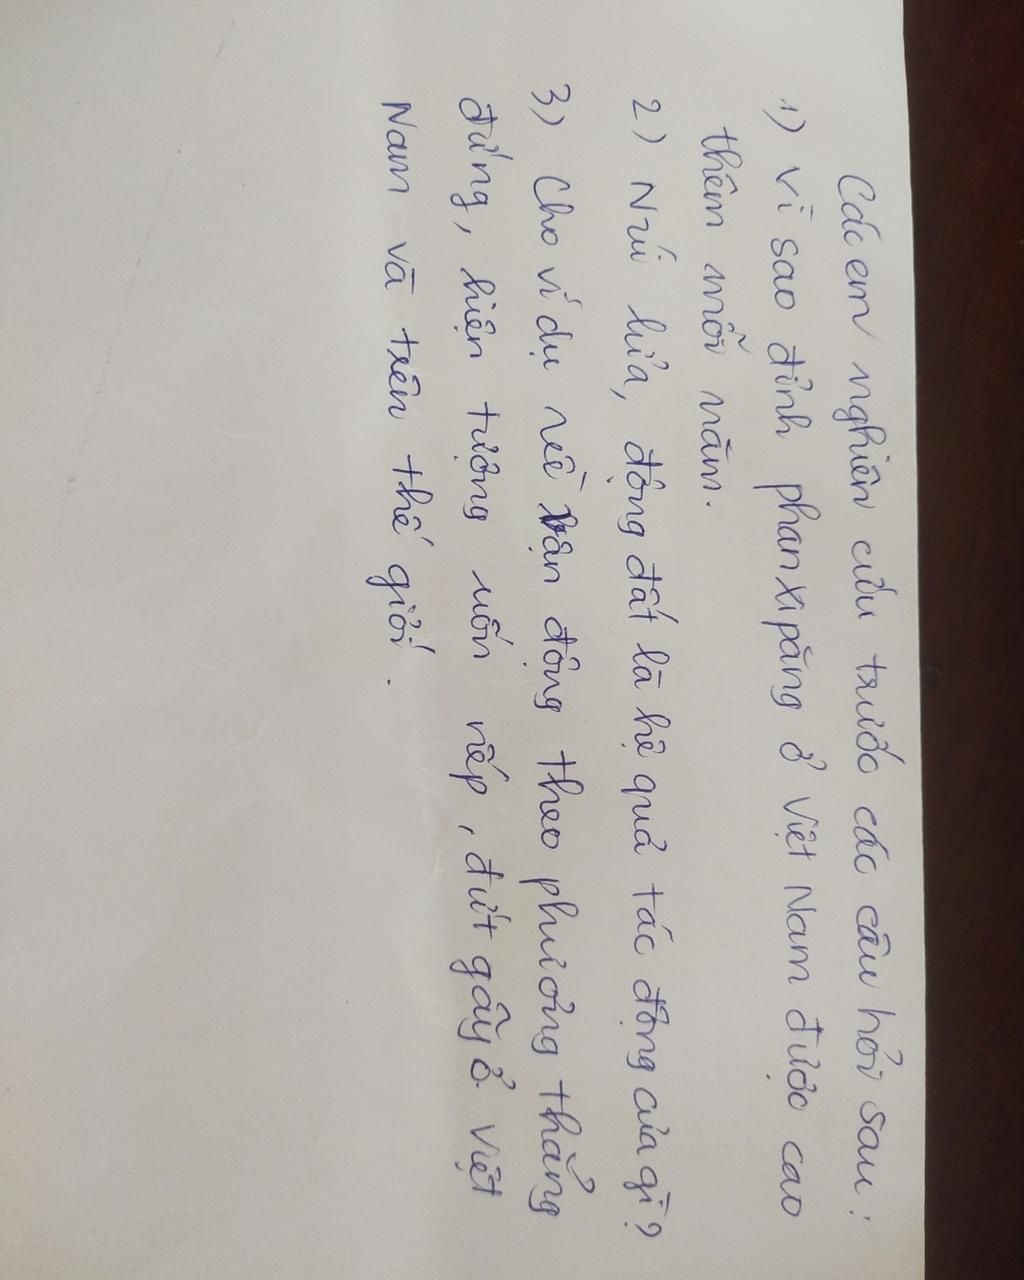 Các em nghiên cứu trước các câu hỏi sau:
1) Vì sao đỉnh phanxipăng ở Việt Nam được cao
thêm mỗi năm.
2) Núi lửa, động đất là hệ quả tác động của gì?
3) Cho ví dụ về vận động theo phương thẳng
đứng, hiện tượng uốn nếp, đứt gãy ở Việt
Nam và trên thế giới.